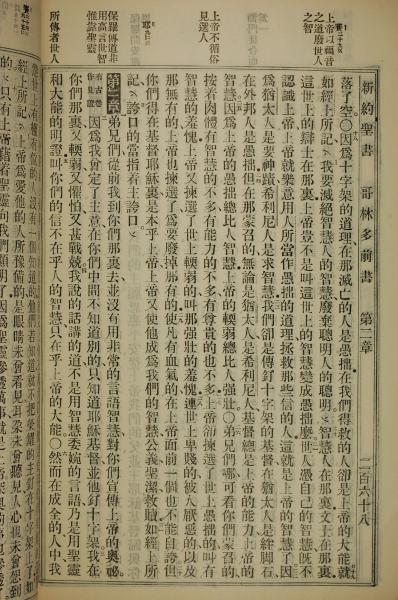 新約聖書 哥林多前書 第二章 一百六十八
上帝以福音
之道廢世人
之智
上帝不循俗
見選人
保羅傳道非
用高言世智
惟憑聖靈
所傳者世人
落了空○因爲十字架的道理在那滅亡的人是愚拙在我們得救的人卻是上帝的大能就
如經上所記我要滅絕智慧人的智慧廢棄聰明人的聰明智慧人在那裏文士在那裏
這世上的辯士在那裏上帝豈不是叫這世上的智慧變成愚拙麼世人憑自己的智慧旣不
認識上帝上帝就樂意用人所當作愚拙的道理拯救那些信的人這就是上帝的智慧了因
爲猶太人是要神蹟希利尼人是求智慧我們卻是傳釘十字架的基督在猶太人是絆脚石
在外邦人是愚拙但在那蒙召的無論是猶太人是希利尼人基督總是上帝的能力上帝的
智慧因爲上帝的愚拙總比人智慧上帝的輭弱總比人強壯○弟兄們哪可看你們蒙召的
按着肉體有智慧的不多有能力的不多有尊貴的也不多上帝卻揀選了世上愚拙的叫有
智慧的羞愧上帝又揀選了世上輭弱的叫那強壯的羞愧連世上卑賤的被人厭惡的以及
那無有的上帝也揀選了爲要廢掉那有的使凡有血氣的在上帝面前一個也不能自誇但
你們得在基督耶穌裏是本乎上帝上帝又使他成爲我們的智慧公義聖潔救贖如經上所
記誇口的當指着主誇口
第二章 弟兄們從前我到你們那裏去並沒有用非常的言語智慧對你們宣傳上帝的奧祕
有古卷作見證 因爲我曾定了主意在你們中間不知道別的只知道耶穌基督並他釘十字架我在
你們那裏又輭弱又懼怕又甚戰兢我說的話講的道不是用智慧委婉的言語乃是用聖靈
和大能的明證叫你們的信不在乎人的智慧只在乎上帝的大能然而在成全的人中我
沒有一個知道的他們若知道就不把榮耀的主釘在十字架上了如
經上所記上帝爲愛他的人所預備的是眼睛未曾看見耳朵未曾聽見人心也未曾想到
的只有上帝藉着聖靈向我們顯明了因爲聖靈參透萬事就是上帝深奧的事也參透了